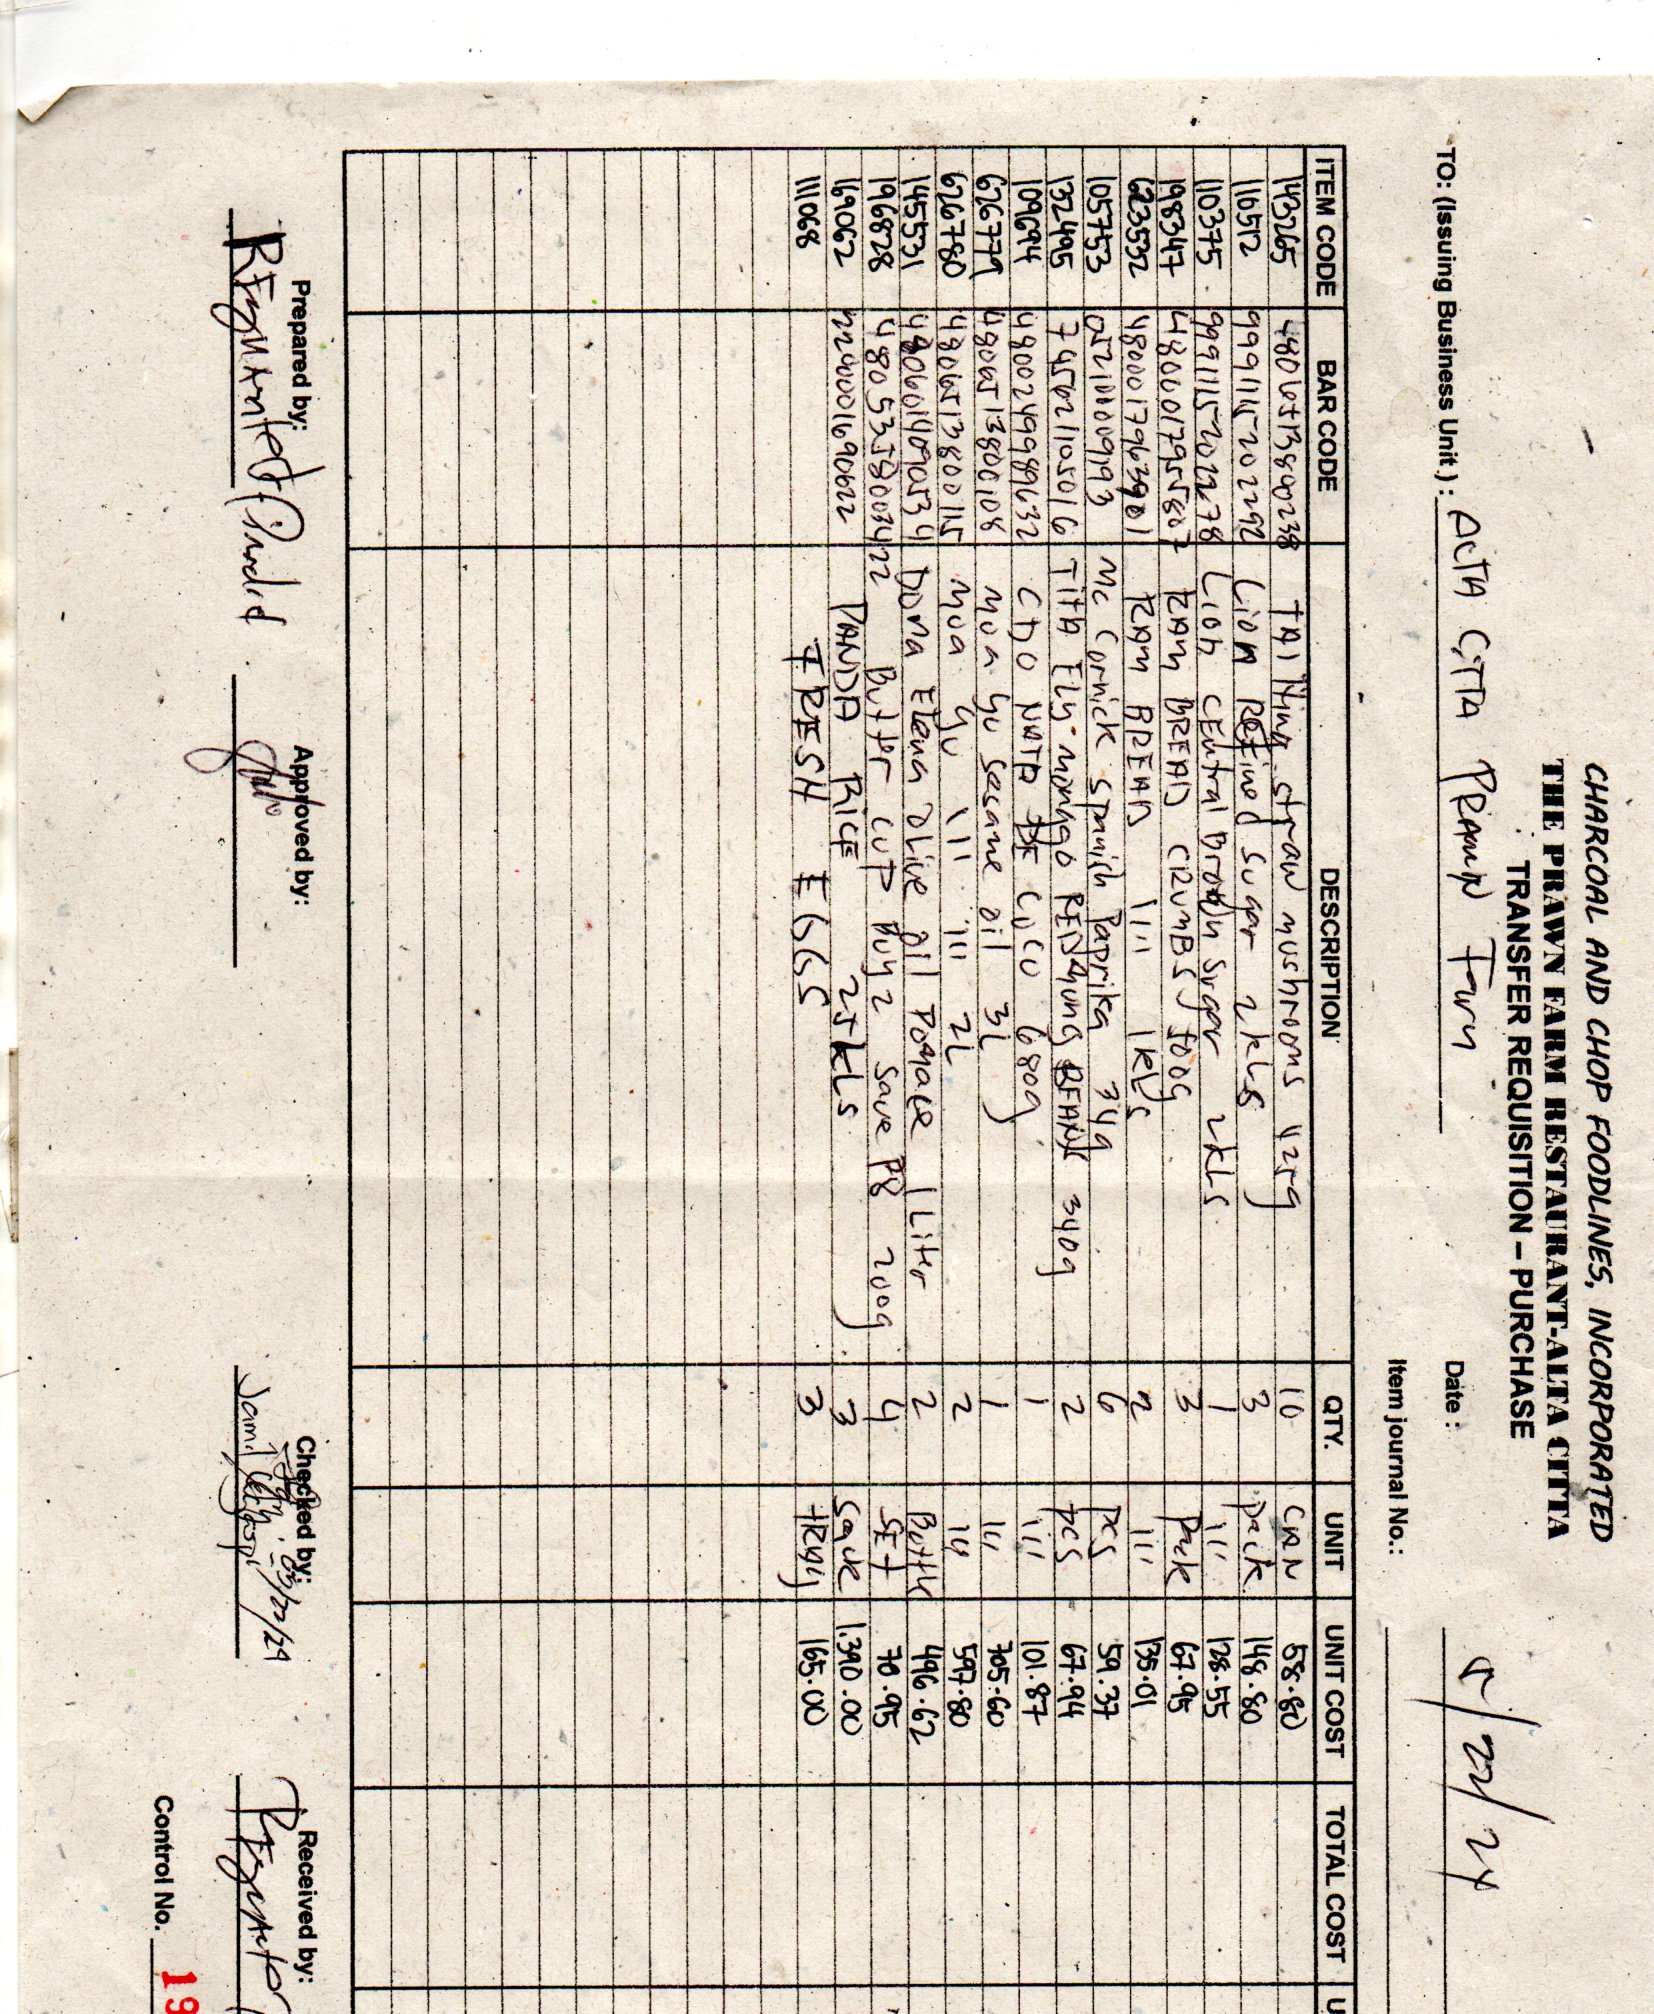 CHARCOAL AND CHOP FOODLINES, INCORPORATED
THE PRAWN FARM RESTAURANT-ALTA CITTA
TRANSFER REQUISITION – PURCHASE
TO: (Issuing Business Unit ) : ALTA CITTA PRAWN Farm Date : 5/22/24
Item journal No.:
ITEM CODE BAR CODE DESCRIPTION QTY. UNIT UNIT COST TOTAL COST U
143265 4806513800238 TAI Hing straw mushrooms 425g 10 CAN 58.80
110512 9991115202292 Lion Refined Sugar 2kLs 3 pack 148.80
110375 9991115202278 Lion CEntral Brown Sugar 2kLs 1 '''' 128.55
198347 4800017955807 RAM BREAD CRUMBS 500g 3 Pack 67.95
623532 4800017963901 RAM BREAD '''' 1kLs 2 ''' 135.01
105753 052100009193 Mc Cormick Spanish Paprika 34g 6 pcs 59.37
132495 745621105016 TitA Ely monggo RED Mung BEANS 340g 2 pcs 67.94
109694 4800249989632 CDO NATA DE COCO 680g 1 ''' 101.87
626779 4806513800108 Moa Yu Sesame oil 3L 1 ''' 705.60
626780 4806513800115 Moa Yu ''' ''' 2L 2 ''' 597.80
145531 4806014090534 Dona Elena Olive Oil Pomace 1 Liter 2 Bottle 496.62
196828 4805358003422 Butter cup Buy 2 Save P8 200g 4 SEt 70.95
169062 2200001690622 PANDA RICE 25kLs 3 sack 1,390.00
111068 FRESH EGGS 3 tRAy 165.00
Prepared by: Approved by: Checked by: Received by:
03/22/24
Jamil
Control No. 19